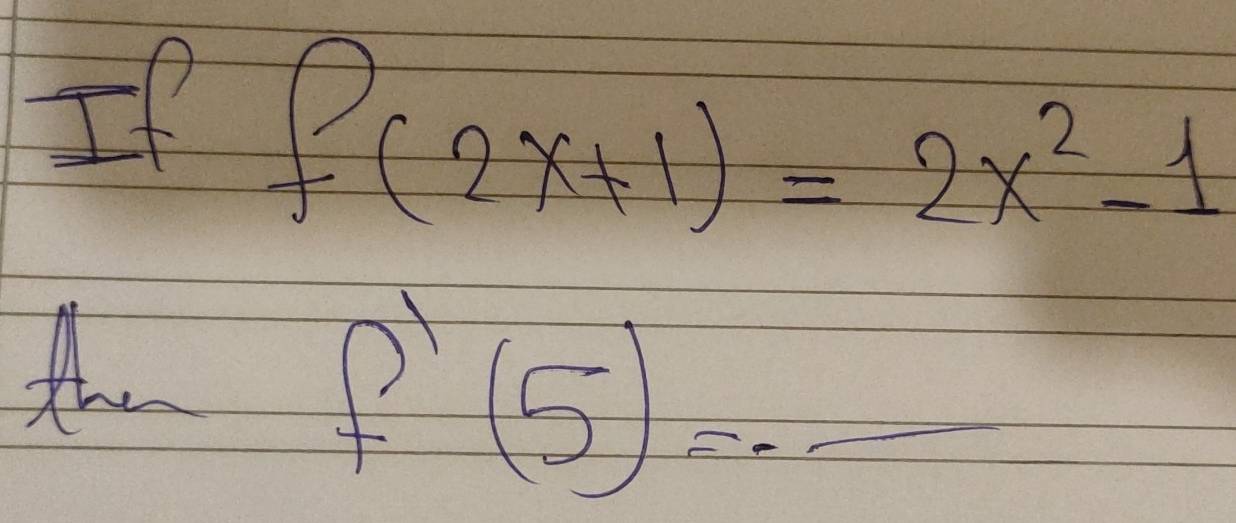 If f(2x+1) = 2x² - 1
then f'(5) = . —